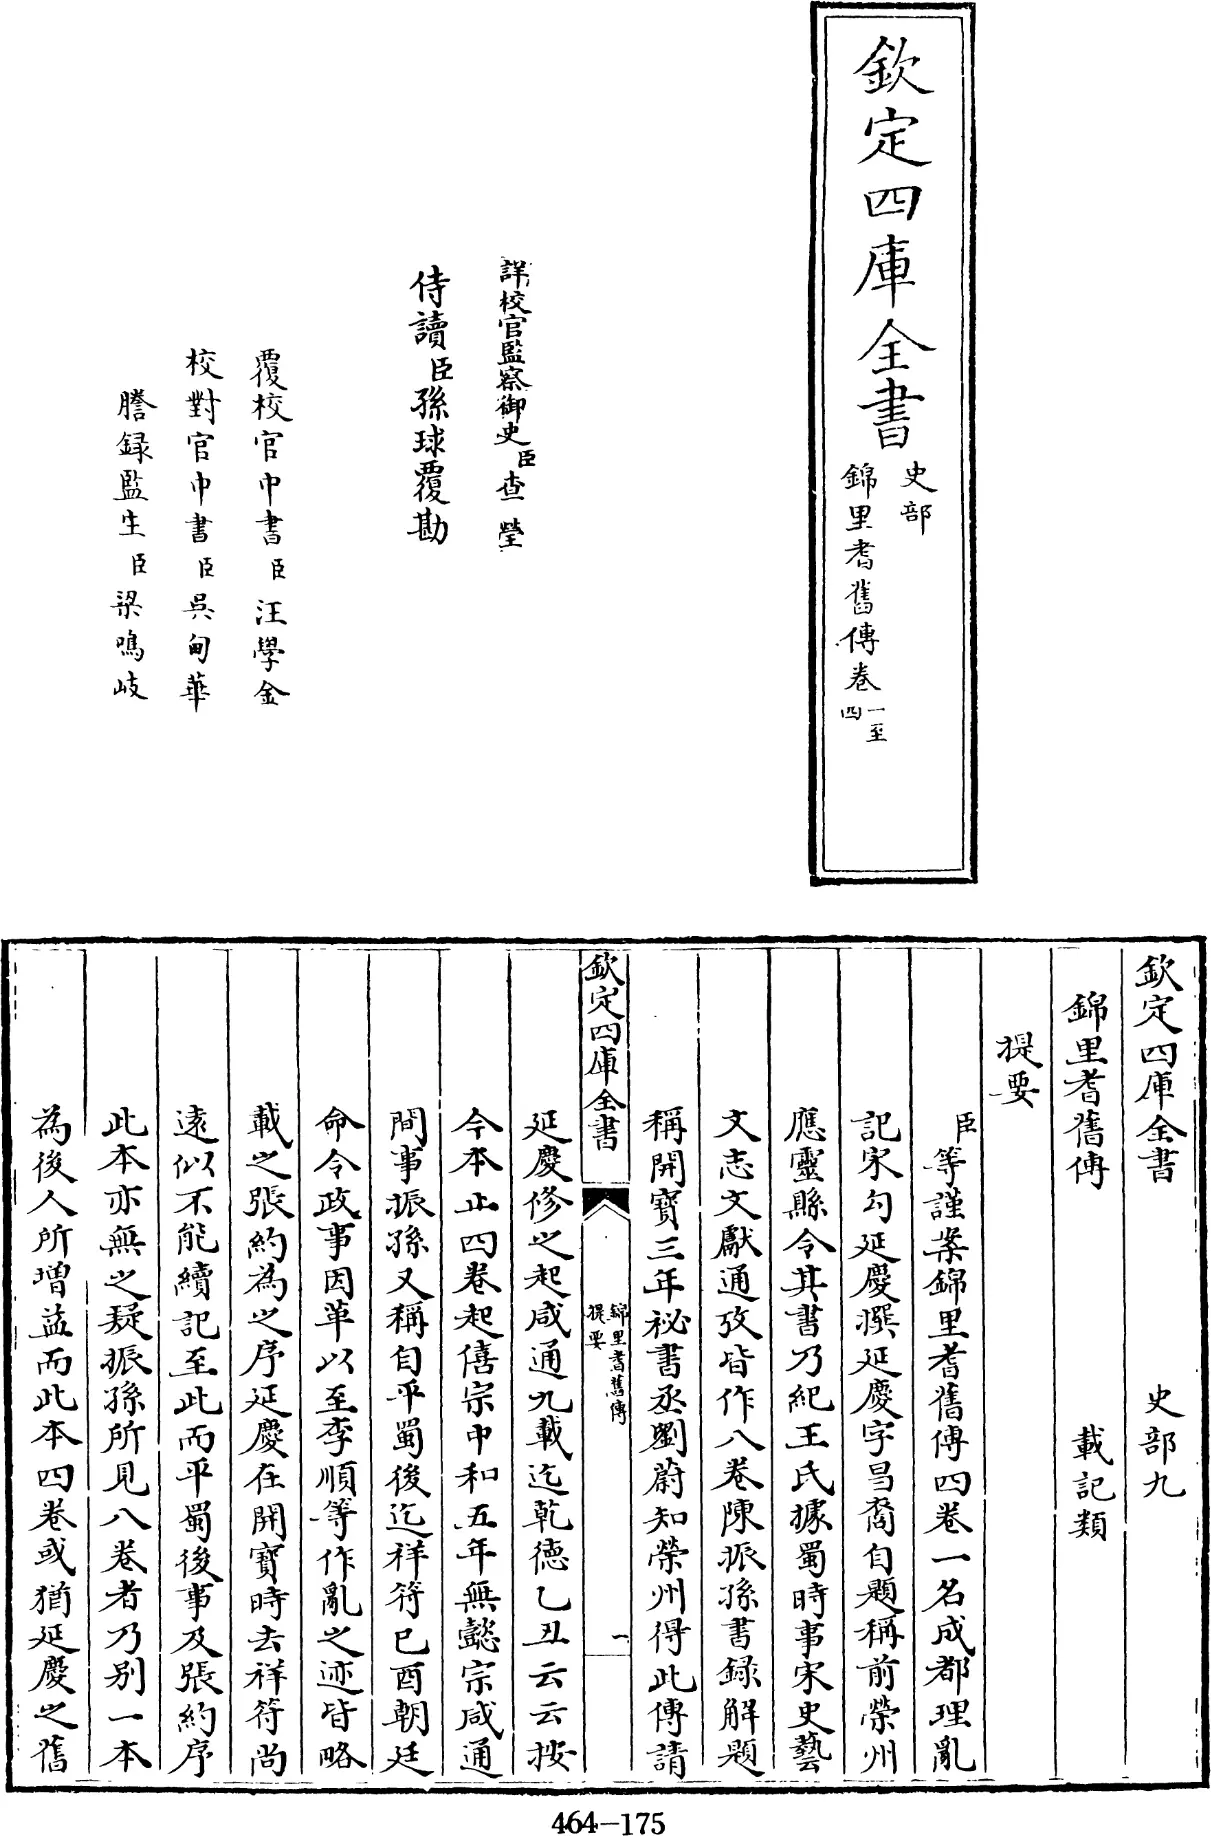 欽定四庫全書
史部
錦里耆舊傳卷一至四
詳校官監察御史臣查瑩
侍讀臣孫球覆勘
覆校官中書臣汪學金
校對官中書臣吳甸華
謄録監生臣梁鳴岐
欽定四庫全書 史部九
錦里耆舊傳 載記類
提要
臣等謹案錦里耆舊傳四卷一名成都理亂
記宋勾延慶撰延慶字昌裔自題稱前榮州
應靈縣令其書乃紀王氏據蜀時事宋史藝
文志文獻通攷皆作八卷陳振孫書録解題
稱開寶三年秘書丞劉蔚知榮州得此傳請
欽定四庫全書
錦里耆舊傳
提要
一
延慶修之起咸通九載迄乾德乙丑云云按
今本止四卷起僖宗中和五年無懿宗咸通
間事振孫又稱自平蜀後迄祥符己酉朝廷
命令政事因革以至李順等作亂之迹皆略
載之張約為之序延慶在開寶時去祥符尚
遠似不能續記至此而平蜀後事及張約序
此本亦無之疑振孫所見八卷者乃别一本
為後人所增益而此本四卷或猶延慶之舊
464-175